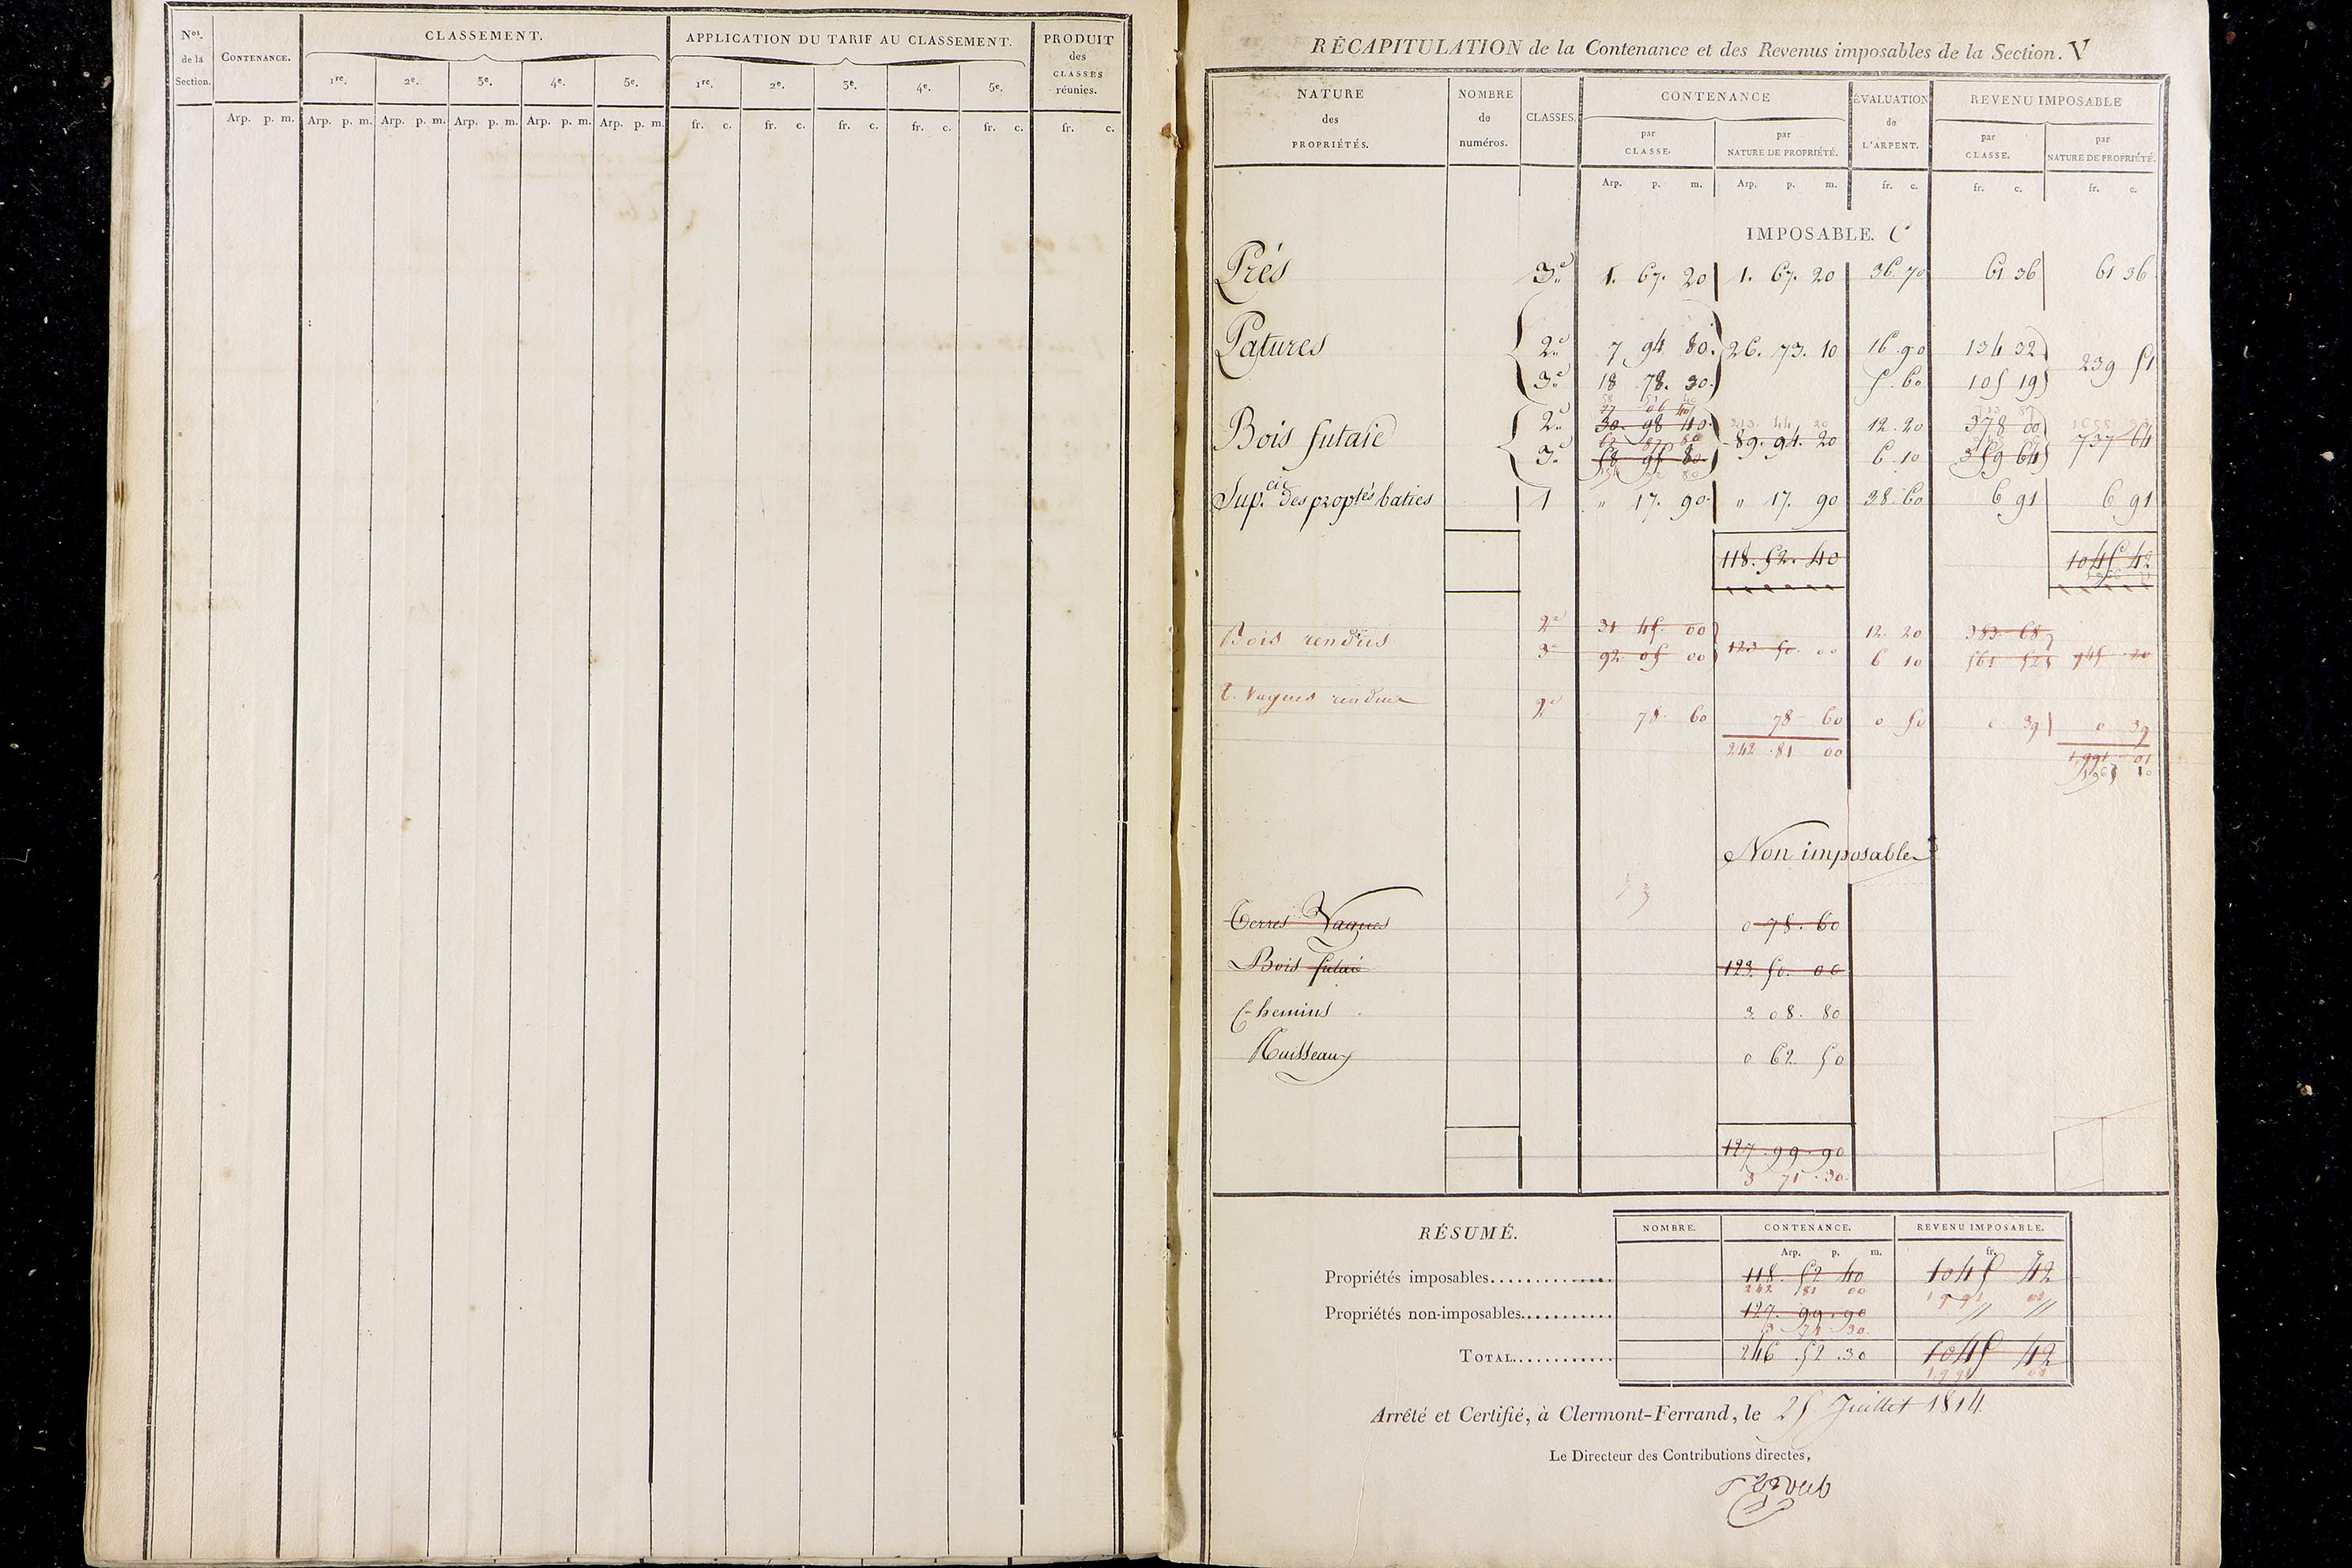 Nos. de la Section.
CONTENANCE.
CLASSEMENT.
APPLICATION DU TARIF AU CLASSEMENT.
PRODUIT des CLASSES réunies.
1re. 2e. 3e. 4e. 5e. 1re. 2e. 3e. 4e. 5e.
Arp. p. m. Arp. p. m. Arp. p. m. Arp. p. m. Arp. p. m. Arp. p. m. fr. c. fr. c. fr. c. fr. c. fr. c. fr. c.
RÉCAPITULATION de la Contenance et des Revenus imposables de la Section. V
NATURE des PROPRIÉTÉS.
NOMBRE de numéros.
CLASSES.
CONTENANCE
par CLASSE.
par NATURE DE PROPRIÉTÉ.
ÉVALUATION de L'ARPENT.
REVENU IMPOSABLE
par CLASSE.
par NATURE DE PROPRIÉTÉ.
Arp. p. m. Arp. p. m. fr. c. fr. c. fr. c.
IMPOSABLE. C
Prés 3e 1. 67. 20 1. 67. 20 36. 70 61 36 61 36
Patures 2e 7 94 80. 26. 73. 10 16. 90 134 32 239 51
3e 18 78. 30. 5. 60 105 19
Bois futaie 2e 30. 98 40. 89. 94. 20 12. 20 378 00 737 64
3e 58 95 80 6 10 359 64
Sup.cie des proptés baties 1 " 17. 90 " 17. 90 38. 60 6 91 6 91
118. 52. 40 1045 42
Bois rendus 2e 31 45 00 123 50. 00 12. 20 383. 68 945 20
3e 92. 05 00 6 10 561 52
T. Vagues rendues 2e 78. 60 78 60 0 50 0 39 0 39
242 . 81 00 1991 01
Non imposable
Terres Vagues 0 78. 60
Bois futaie 123. 50. 00
Chemins 3. 08. 80
Ruisseaux 0 62. 50
127. 99. 90
3 71. 30
RÉSUMÉ.
NOMBRE. CONTENANCE. REVENU IMPOSABLE.
Arp. p. m. fr. c.
Propriétés imposables.............. 118. 52 40 1045 42
242 81 00 1991 01
Propriétés non-imposables........... 127. 99. 90 " "
3 71 30
TOTAL............ 246 . 52 . 30 1045 42
1991 01
Arrêté et Certifié, à Clermont-Ferrand, le 25 Juillet 1814
Le Directeur des Contributions directes,